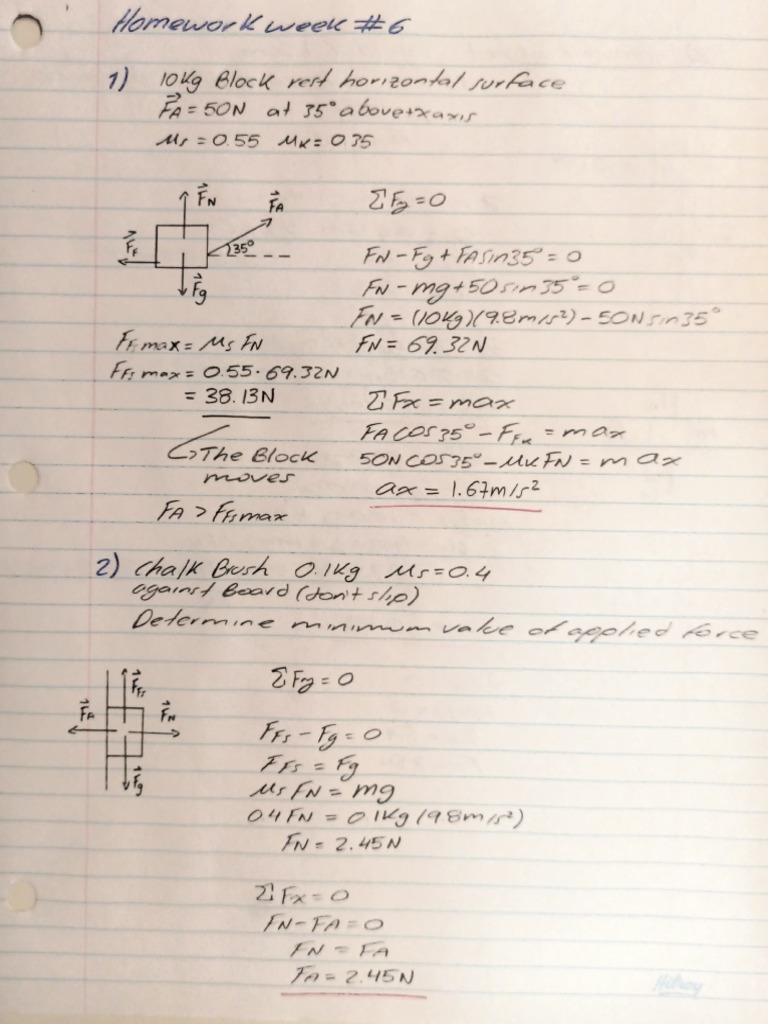 Homework week #6
1) 10kg Block rest horizontal surface
F⃗A = 50N at 35° above +x axis
μs = 0.55 μk = 0.35
F⃗N F⃗A
F⃗f 35°
F⃗g
ΣFy = 0
FN - Fg + FA sin35° = 0
FN - mg + 50 sin 35° = 0
FN = (10kg)(9.8m/s²) - 50N sin35°
FN = 69.32N
Ffs max = μs FN
Ffs max = 0.55 · 69.32N
= 38.13N
↳ The Block
moves
FA > Ffs max
ΣFx = max
FA cos35° - Ffk = max
50N cos35° - μk FN = m ax
ax = 1.67m/s²
2) Chalk Brush 0.1kg μs = 0.4
against Board (don't slip)
Determine minimum value of applied force
F⃗fs
F⃗A F⃗N
F⃗g
ΣFy = 0
Ffs - Fg = 0
Ffs = Fg
μs FN = mg
0.4 FN = 0.1kg (9.8m/s²)
FN = 2.45N
ΣFx = 0
FN - FA = 0
FN = FA
FA = 2.45N
Hilroy